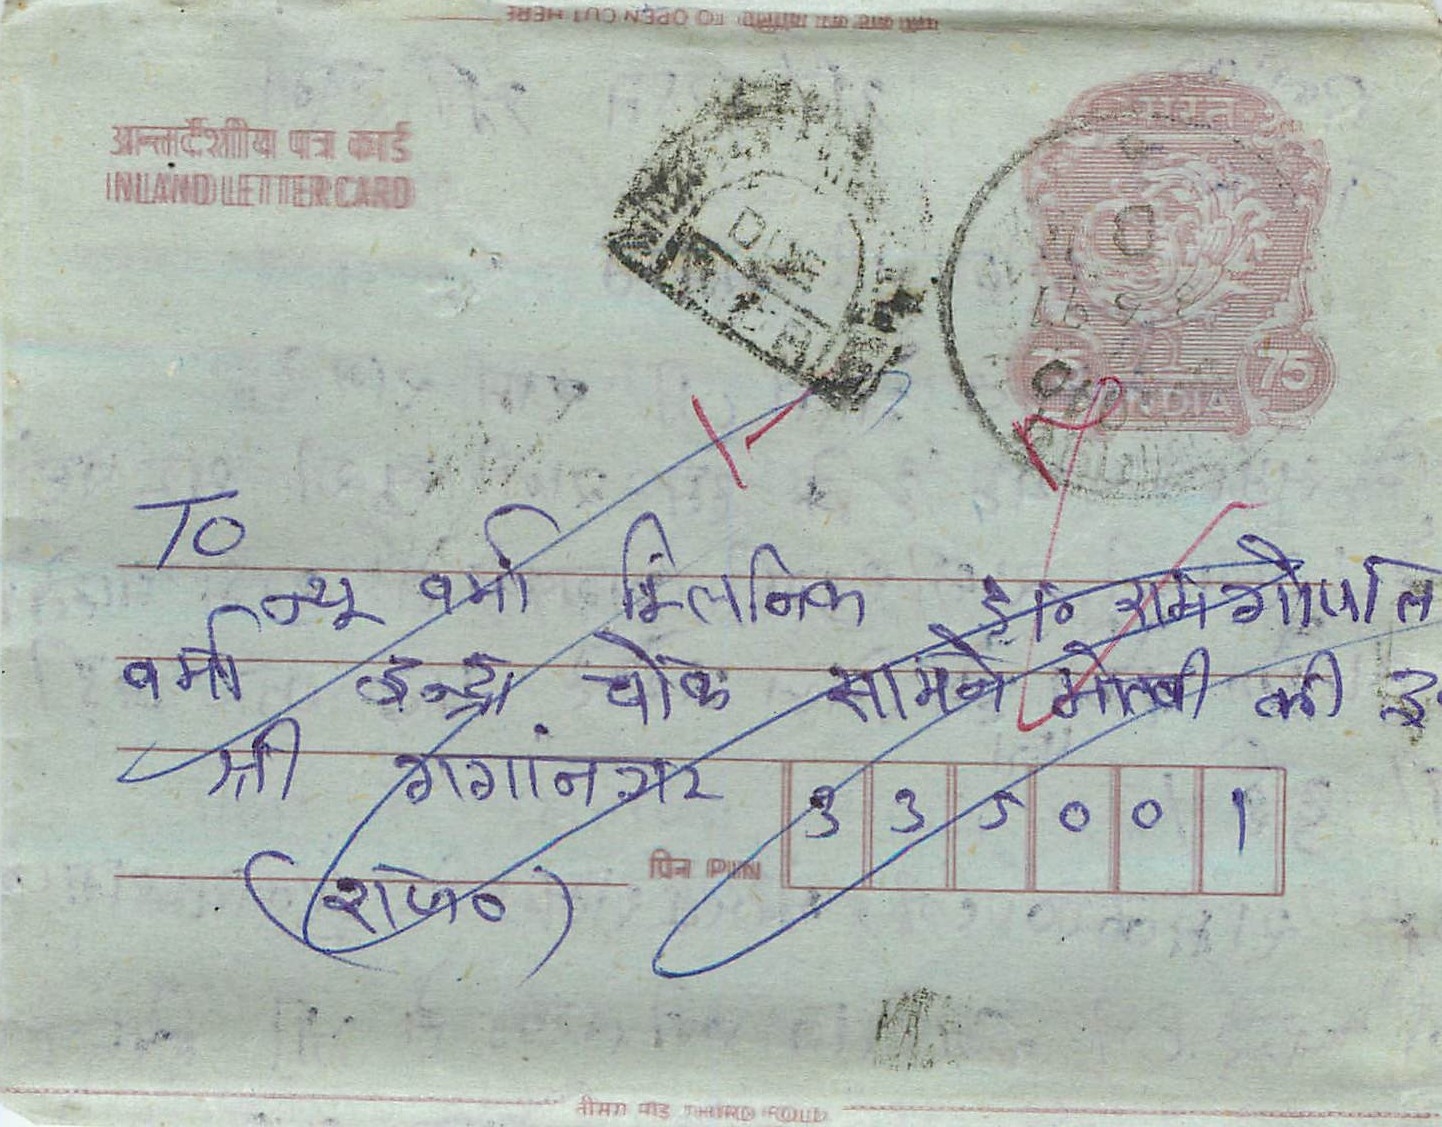 TO OPEN CUT HERE
आन्तर्देशीय पत्र कार्ड
INLAND LETTER CARD
भारत
DUE
75 75
INDIA
To
न्यू वर्मा क्लिनिक डा० रामगोपाल
वर्मा इन्द्रा चोक सामने मोत्वी की
श्री गंगानगर
पिन PIN 335001
(राज०)
तीसरा मोड़ THIRD FOLD